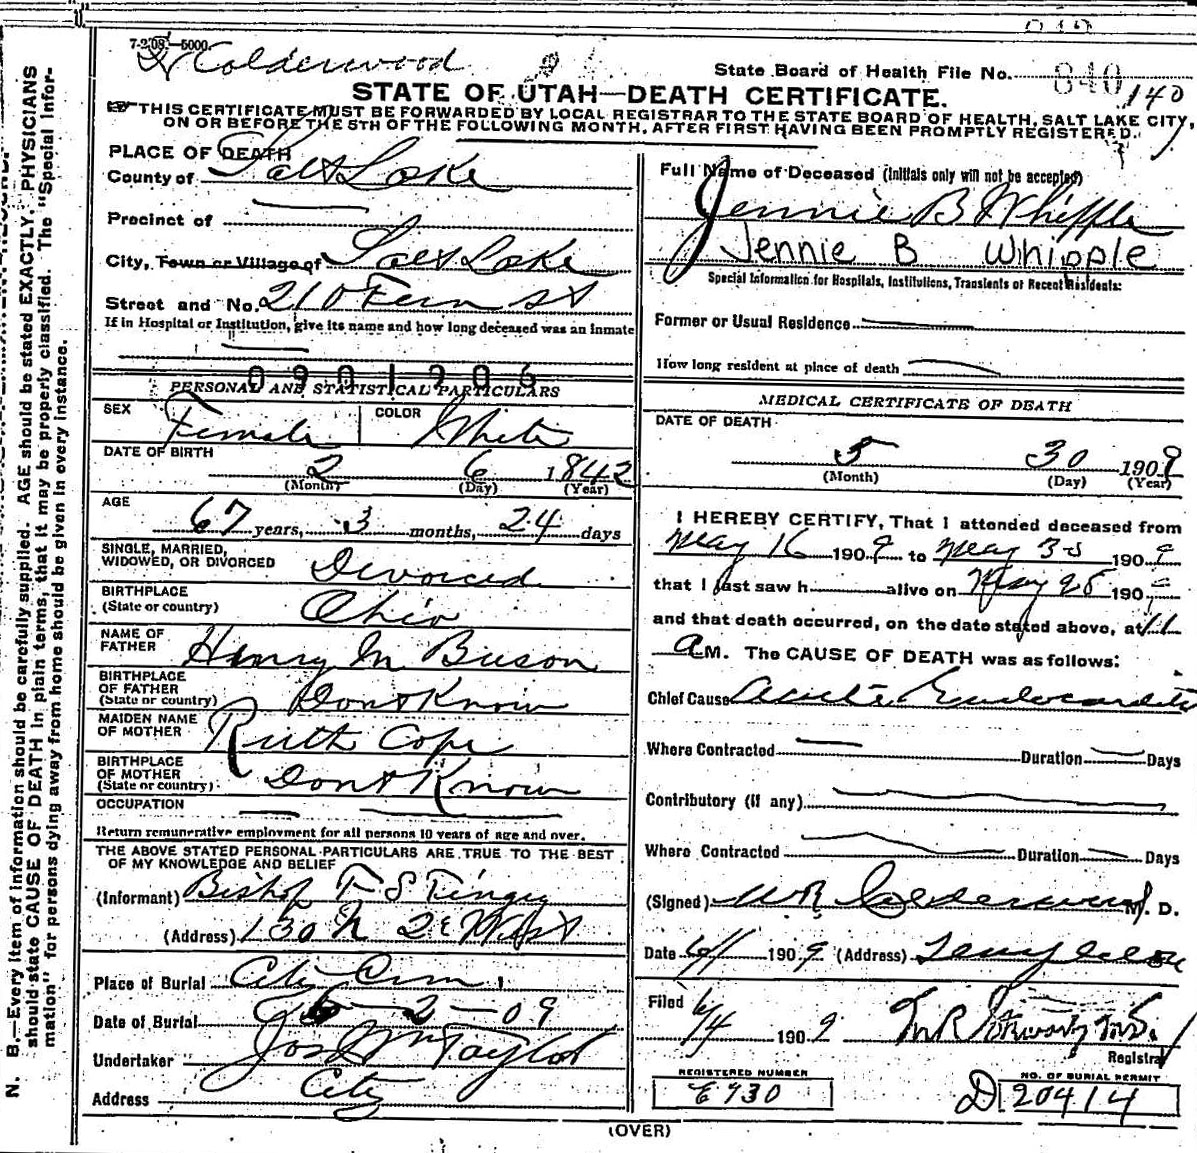 7-2-'08.—5000.
Calderwood
State Board of Health File No. 840 140
STATE OF UTAH—DEATH CERTIFICATE.
THIS CERTIFICATE MUST BE FORWARDED BY LOCAL REGISTRAR TO THE STATE BOARD OF HEALTH, SALT LAKE CITY,
ON OR BEFORE THE 5TH OF THE FOLLOWING MONTH, AFTER FIRST HAVING BEEN PROMPTLY REGISTERED.
PLACE OF DEATH
County of Salt Lake
Precinct of
City, Town or Village of Salt Lake
Street and No. 210 Fern St
If in Hospital or Institution, give its name and how long deceased was an inmate
0901906
PERSONAL AND STATISTICAL PARTICULARS
SEX Female COLOR White
DATE OF BIRTH
2 6 1842
(Month) (Day) (Year)
AGE
67 years, 3 months, 24 days
SINGLE, MARRIED,
WIDOWED, OR DIVORCED Divorced
BIRTHPLACE
(State or country) Ohio
NAME OF
FATHER Henry M Buson
BIRTHPLACE
OF FATHER
(State or country) Dont Know
MAIDEN NAME
OF MOTHER Ruth Cope
BIRTHPLACE
OF MOTHER
(State or country) Dont Know
OCCUPATION
Return remunerative employment for all persons 10 years of age and over.
THE ABOVE STATED PERSONAL PARTICULARS ARE TRUE TO THE BEST
OF MY KNOWLEDGE AND BELIEF
(Informant) Bishop T S Tingey
(Address) 130 N 2d West
Place of Burial City Cem
Date of Burial 6-2-09
Undertaker Jos Wm Taylor
Address City
Full Name of Deceased (Initials only will not be accepted)
Jennie B Whipple
Jennie B Whipple
Special Information for Hospitals, Institutions, Transients or Recent Residents:
Former or Usual Residence
How long resident at place of death
MEDICAL CERTIFICATE OF DEATH
DATE OF DEATH
5 30 1909
(Month) (Day) (Year)
I HEREBY CERTIFY, That I attended deceased from
May 16 1909 to May 30 1909
that I last saw h alive on May 28 1909
and that death occurred, on the date stated above, at 11
A M. The CAUSE OF DEATH was as follows:
Chief Cause Acute Endocarditis
Where Contracted Duration Days
Contributory (if any)
Where Contracted Duration Days
(Signed) W R Calderwood M. D.
Date 6/1 1909 (Address) Templeton
Filed 6/4 1909
Registrar
REGISTERED NUMBER
E 930
NO. OF BURIAL PERMIT
D 20414
(OVER)
N. B.—Every item of information should be carefully supplied. AGE should be stated EXACTLY. PHYSICIANS
should state CAUSE OF DEATH in plain terms, that it may be properly classified. The "Special Infor-
mation" for persons dying away from home should be given in every instance.